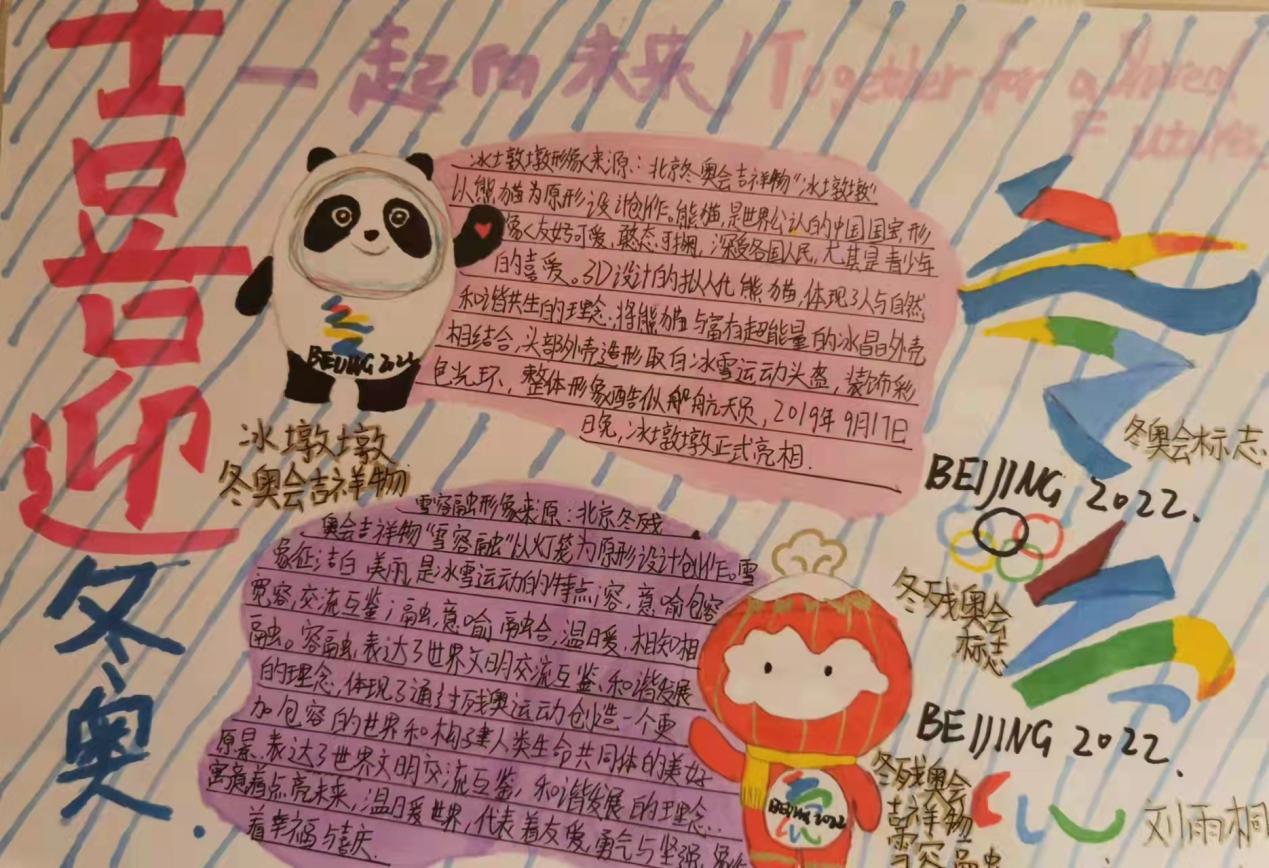 喜迎
冬奥.
一起向未来!Together for a Shared
Future
冰墩墩形象来源:北京冬奥会吉祥物“冰墩墩”
以熊猫为原形设计创作。熊猫是世界公认的中国国宝,形
象友好可爱、憨态可掬,深受各国人民,尤其是青少年
的喜爱。3D设计的拟人化熊猫,体现了人与自然
和谐共生的理念.将熊猫与富有超能量的冰晶外壳
相结合,头部外壳造形取自冰雪运动头盔,装饰彩
色光环,整体形象酷似航天员,2019年9月17日
晚,冰墩墩正式亮相.
BEIJING 2022
冰墩墩
冬奥会吉祥物
冬奥会标志
BEIJING 2022.
雪容融形象来源:北京冬残
奥会吉祥物“雪容融”以灯笼为原形设计创作。雪
象征洁白美丽,是冰雪运动的特点;容,意喻包容
宽容,交流互鉴;融,意喻融合,温暖,相知相
融。容融表达了世界文明交流互鉴、和谐发展
的理念,体现了通过残奥运动创造一个更
加包容的世界和构建人类生命共同体的美好
原景.表达了世界文明交流互鉴,和谐发展的理念..
寓意着点亮未来,温暖世界,代表着友爱,勇气与坚强,
着幸福与喜庆.
冬残奥会
标志
BEIJING 2022.
BEIJING 2022
冬残奥会
吉祥物
雪容融
刘雨桐